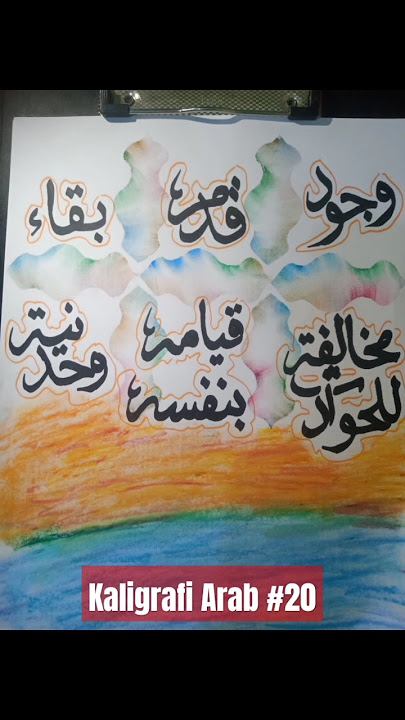 وجود
قدم
بقاء
للحواد
قيامه
بنفسه
وحدنية
Kaligrafi Arab #20